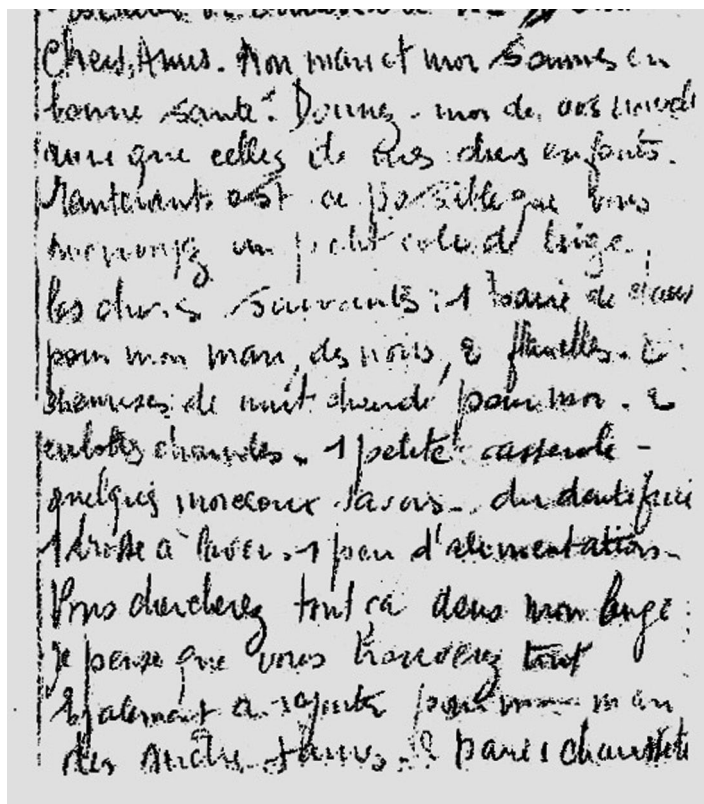 Chers, Amis. Mon mari et moi sommes en
bonne santé. Donnez-moi de vos
que celles de vos chers enfants.
Maintenant est ce possible que vous
un petit colis de linge,
les choses suivantes : 1
pour mon mari, des noirs, 2 flanelles. 2
chemises de nuit chaude pour moi. 2
culottes chaudes. 1 petite casserole -
quelques morceaux savons - du dentifrice
1 brosse à laver. 1 peu d'alimentation -
Vous chercherez tout ça dans mon linge.
je pense que vous trouverez tout
également a rajouter pour mon mari
des 2 paires chaussettes